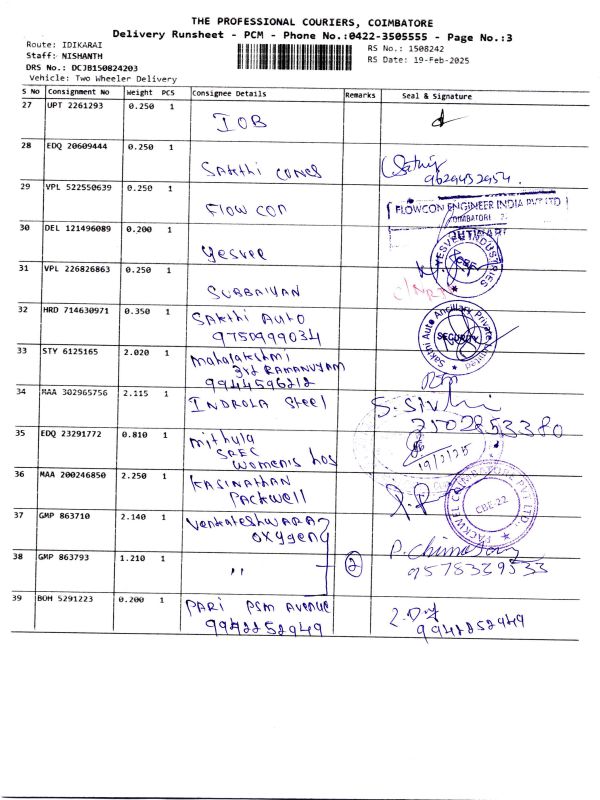 THE PROFESSIONAL COURIERS, COIMBATORE
Delivery Runsheet - PCM - Phone No.:0422-3505555 - Page No.:3
Route: IDIKARAI
Staff: NISHANTH
DRS No.: DCJB150824203
Vehicle: Two Wheeler Delivery
RS No.: 1508242
RS Date: 19-Feb-2025
S No Consignment No Weight PCS Consignee Details Remarks Seal & Signature
27 UPT 2261293 0.250 1
IOB
28 EDQ 20609444 0.250 1
Sakthi CONES
9629432954.
29 VPL 522550639 0.250 1
FLOW CON
FLOWCON ENGINEER INDIA PVT LTD
COIMBATORE
30 DEL 121496089 0.200 1
Yesvee
YESVEE INDUSTRIES
CBE
31 VPL 226826863 0.250 1
SUBBAIYAN
32 HRD 714630971 0.350 1
Sakthi Auto
9750999034
Sakthi Auto Ancillary Private Limited
SECURITY
33 STY 6125165 2.020 1
Mahalakshmi
3rd RAMANUYAM
9944596212
34 MAA 302965756 2.115 1
INDROLA Steel
S. Sivhi
7502853380
35 EDQ 23291772 0.810 1
Mithula
SREC
Women's hos
19/2/25
36 MAA 200246850 2.250 1
KASINATHAN
PACKWELL
PACKWEL COIMBATORE PVT LTD
CBE-22
37 GMP 863710 2.140 1
Venkateshwara
OXYgeng
38 GMP 863793 1.210 1
,,
2
9578329533
39 BOM 5291223 0.200 1
PARI PSM AVENUE
9942252949
9942252949